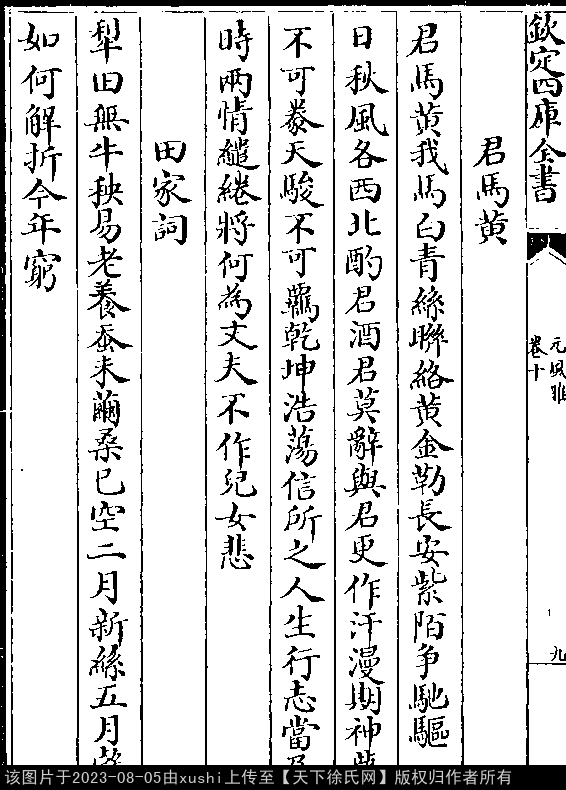 欽定四庫全書
元風雅
卷十
九
君馬黄
君馬黄我馬白青絲聯絡黄金勒長安紫陌争馳驅
日秋風各西北酌君酒君莫辭與君更作汗漫期神
不可豢天駿不可羈乾坤浩蕩信所之人生行志當
時兩情繾綣將何為丈夫不作兒女悲
田家詞
犁田無牛秧易老養蚕未繭桑已空二月新絲五月
如何解折今年窮
该图片于2023-08-05由xushi上传至【天下徐氏网】版权归作者所有